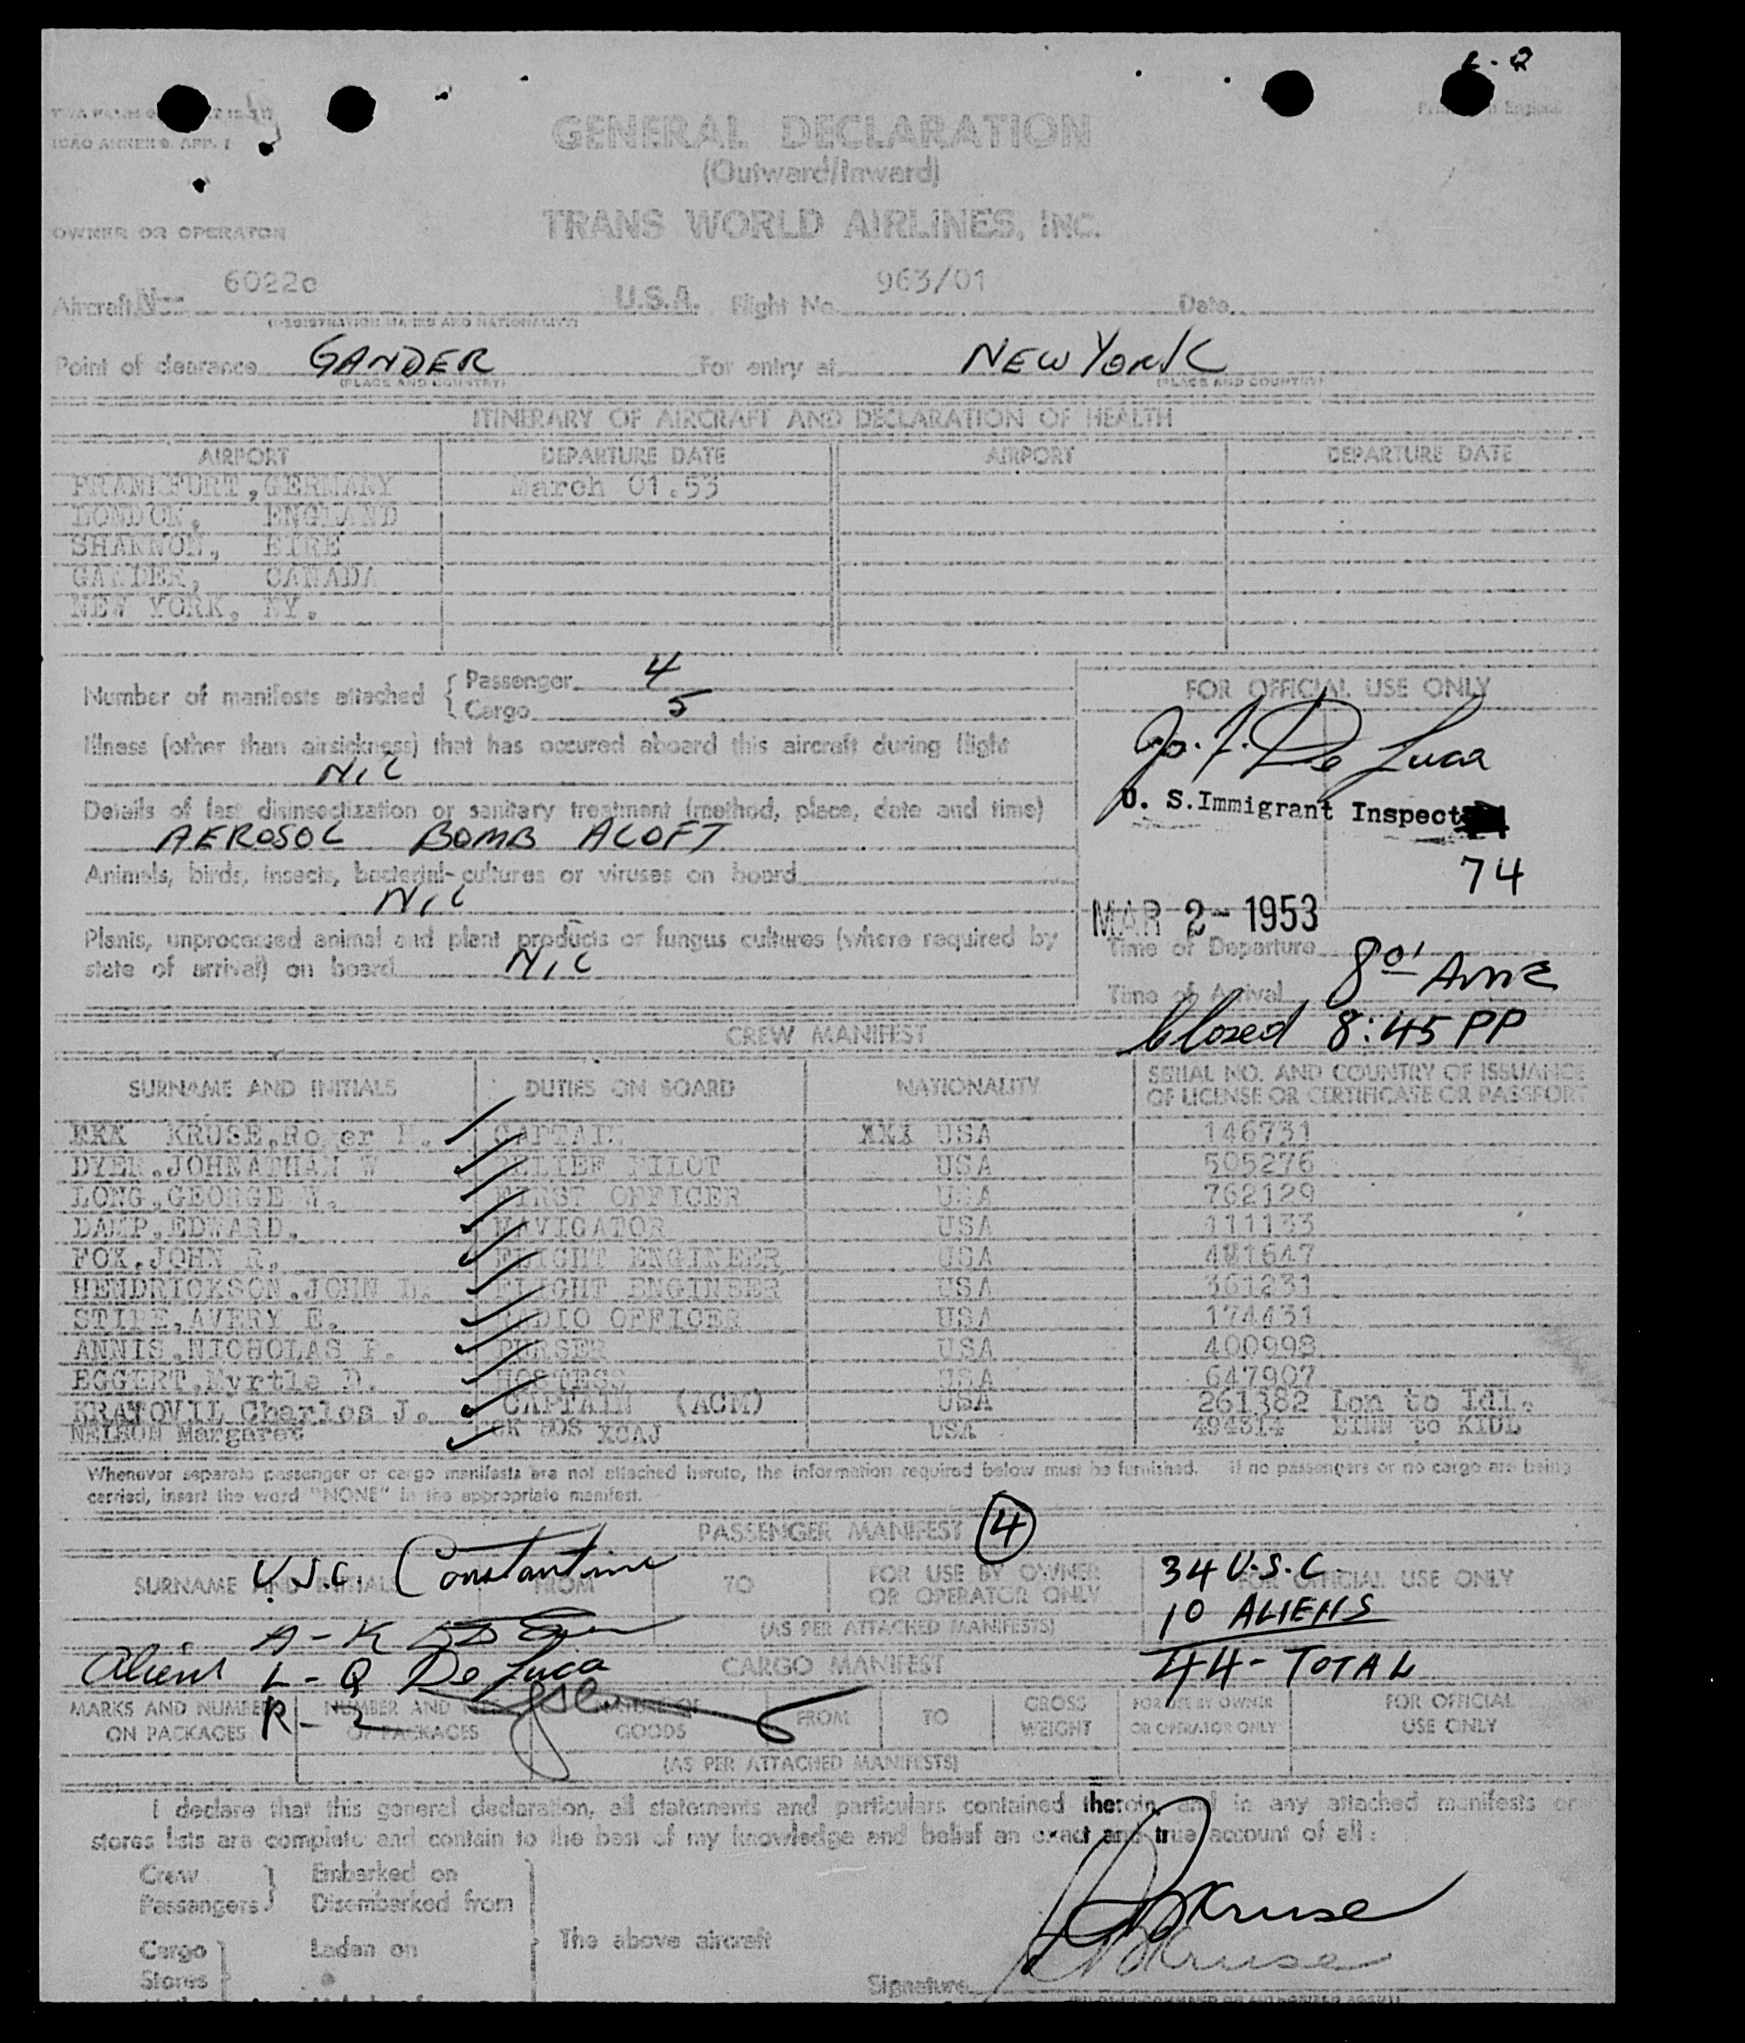 L-Q
ICAO ANNEX 9. APP. 1
GENERAL DECLARATION
(Outward/Inward)
OWNER OR OPERATOR TRANS WORLD AIRLINES, INC.
Aircraft No. 6022c U.S.A. Flight No. 963/01 Date
(REGISTRATION MARKS AND NATIONALITY)
Point of clearance GANDER For entry at NEW YORK
(PLACE AND COUNTRY) (PLACE AND COUNTRY)
ITINERARY OF AIRCRAFT AND DECLARATION OF HEALTH
AIRPORT DEPARTURE DATE AIRPORT DEPARTURE DATE
FRANKFURT, GERMANY March 01.53
LONDON, ENGLAND
SHANNON, EIRE
GANDER, CANADA
NEW YORK, NY.
Number of manifests attached { Passenger 4
Cargo 5
FOR OFFICIAL USE ONLY
Illness (other than airsickness) that has occured aboard this aircraft during flight
NIL
De Luca
U. S. Immigrant Inspector
Details of last disinsectization or sanitary treatment (method, place, date and time)
AEROSOL BOMB ALOFT
74
Animals, birds, insects, bacterial-cultures or viruses on board
NIL
MAR 2 - 1953
Plants, unprocessed animal and plant products or fungus cultures (where required by
state of arrival) on board NIL
Time of Departure
Time of Arrival 8 01 AM
Closed 8:45 PP
CREW MANIFEST
SURNAME AND INITIALS DUTIES ON BOARD NATIONALITY SERIAL NO. AND COUNTRY OF ISSUANCE
OF LICENSE OR CERTIFICATE OR PASSPORT
KRUSE, Roger CAPTAIN XXX USA 146731
DYER, JOHNATHAN W RELIEF PILOT USA 505276
LONG, GEORGE W. FIRST OFFICER USA 762129
DAMP, EDWARD. NAVIGATOR USA 111133
FOX, JOHN R. FLIGHT ENGINEER USA 481647
HENDRICKSON, JOHN L. FLIGHT ENGINEER USA 361231
STIPE, AVERY E. RADIO OFFICER USA 174431
ANNIS, NICHOLAS P. PURSER USA 400998
EGGERT, Myrtle D. HOSTESS USA 647907
KRATOVIL Charles J. CAPTAIN (ACM) USA 261382 Lon to Idl.
NELSON Margaret USA 494314 EINN to KIDL
Whenever separate passenger or cargo manifests are not attached hereto, the information required below must be furnished. If no passengers or no cargo are being
carried, insert the word "NONE" in the appropriate manifest.
PASSENGER MANIFEST 4
U.S.C. Constantine
SURNAME AND INITIALS FROM TO FOR USE BY OWNER
OR OPERATOR ONLY FOR OFFICIAL USE ONLY
34 U.S.C.
10 ALIENS
44 - TOTAL
(AS PER ATTACHED MANIFESTS)
A - K
Aliens L - Q De Luca
R - Z
CARGO MANIFEST
MARKS AND NUMBER
ON PACKAGES NUMBER AND
OF PACKAGES NATURE OF
GOODS FROM TO GROSS
WEIGHT FOR USE BY OWNER
OR OPERATOR ONLY FOR OFFICIAL
USE ONLY
(AS PER ATTACHED MANIFESTS)
I declare that this general declaration, all statements and particulars contained therein, and in any attached manifests or
stores lists are complete and contain to the best of my knowledge and belief an exact and true account of all :
Crew Embarked on
Passengers } Disembarked from
Cargo Laden on The above aircraft
Stores
Kruse
Kruse
Signature